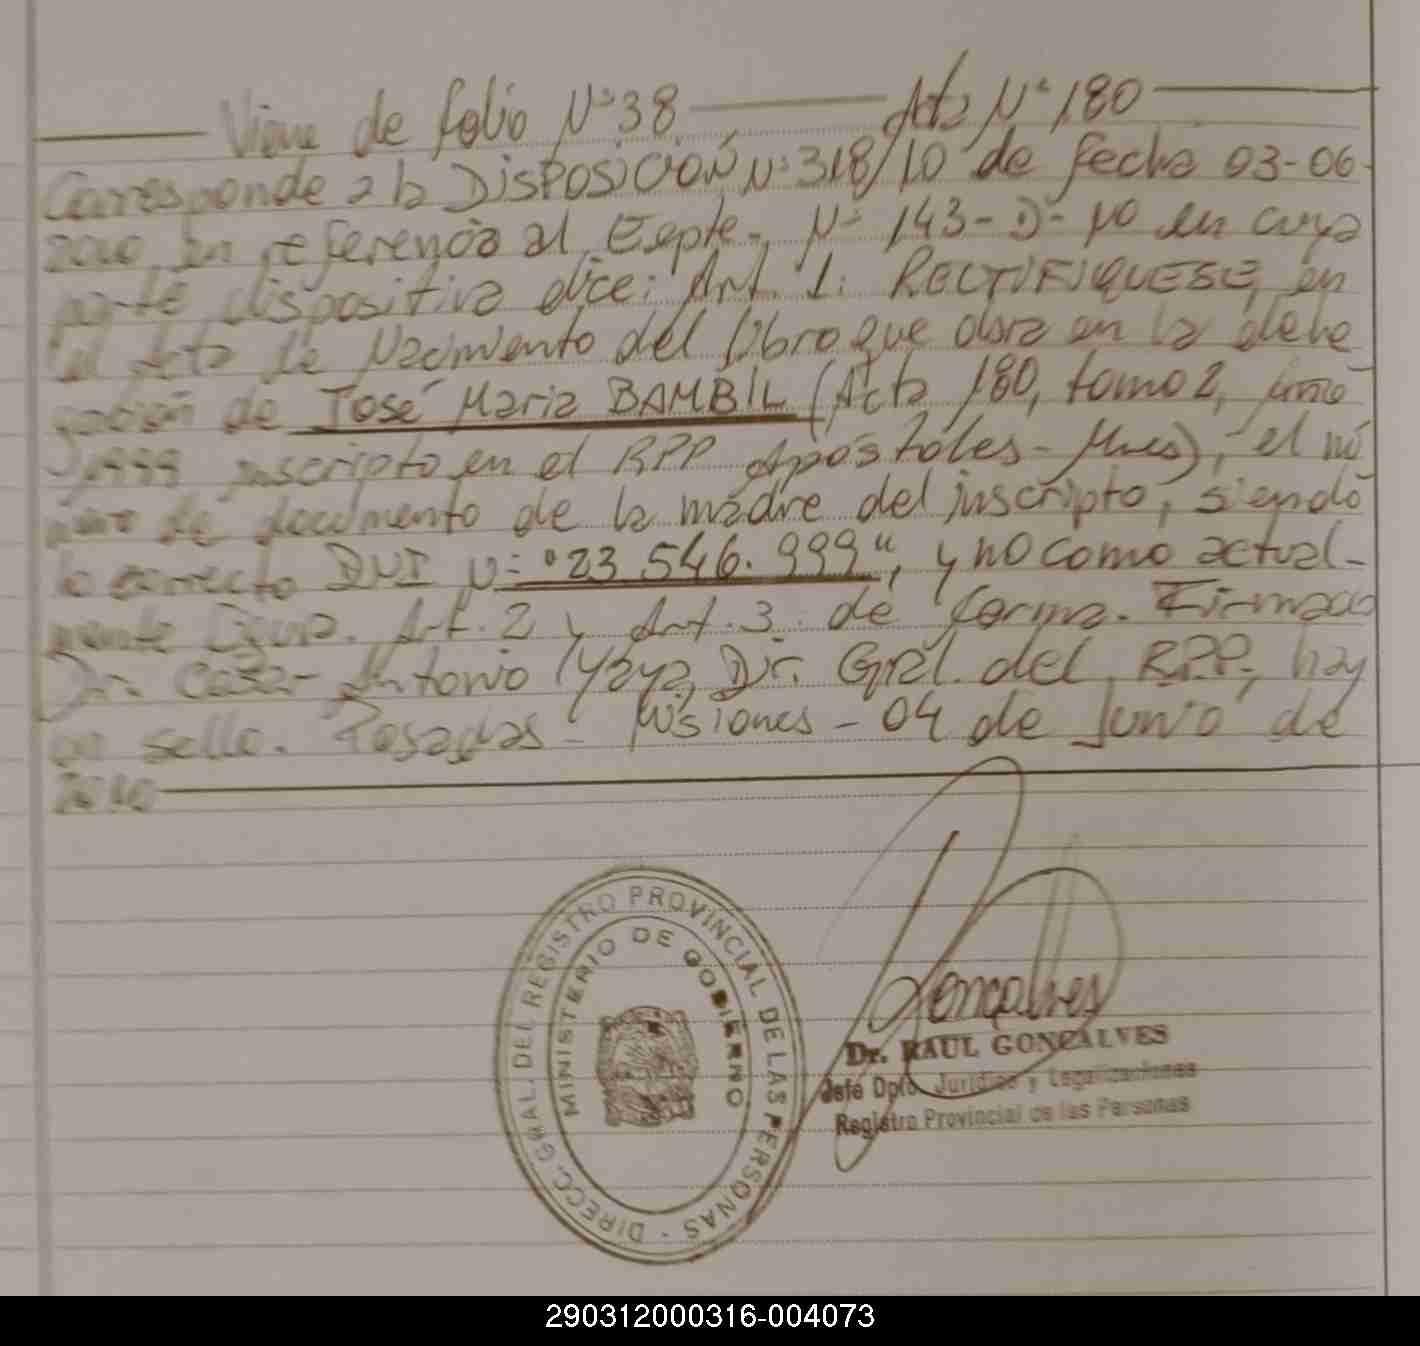 Viene de folio Nº 38 Acta Nº 180
Corresponde a la DISPOSICIÓN Nº 318/10 de fecha 03-06-
2010, en referencia al Expte. Nº 143-D-10 en cuya
parte dispositiva dice: Art. 1: RECTIFIQUESE, en
el Acta de Nacimiento del libro que obra en la dele
gación de José Maria BAMBIL (Acta 180, tomo 2, año
1999 inscripto en el RPP Apóstoles - Mnes), el nú
mero de documento de la madre del inscripto, siendo
lo correcto DNI Nº "23.546.999", y no como actual-
mente figura. Art. 2 y Art. 3. de forma. Firmado
Dr. Cesar Antonio Yaya, Dir. Gral. del RPP, hay
un sello. Posadas - Misiones - 04 de Junio de
2010
DIRECC. GRAL. DEL REGISTRO PROVINCIAL DE LAS PERSONAS -
MINISTERIO DE GOBIERNO
Goncalves
Dr. RAUL GONCALVES
Jefe Dpto. Jurídico y Legalizaciones
Registro Provincial de las Personas
290312000316-004073